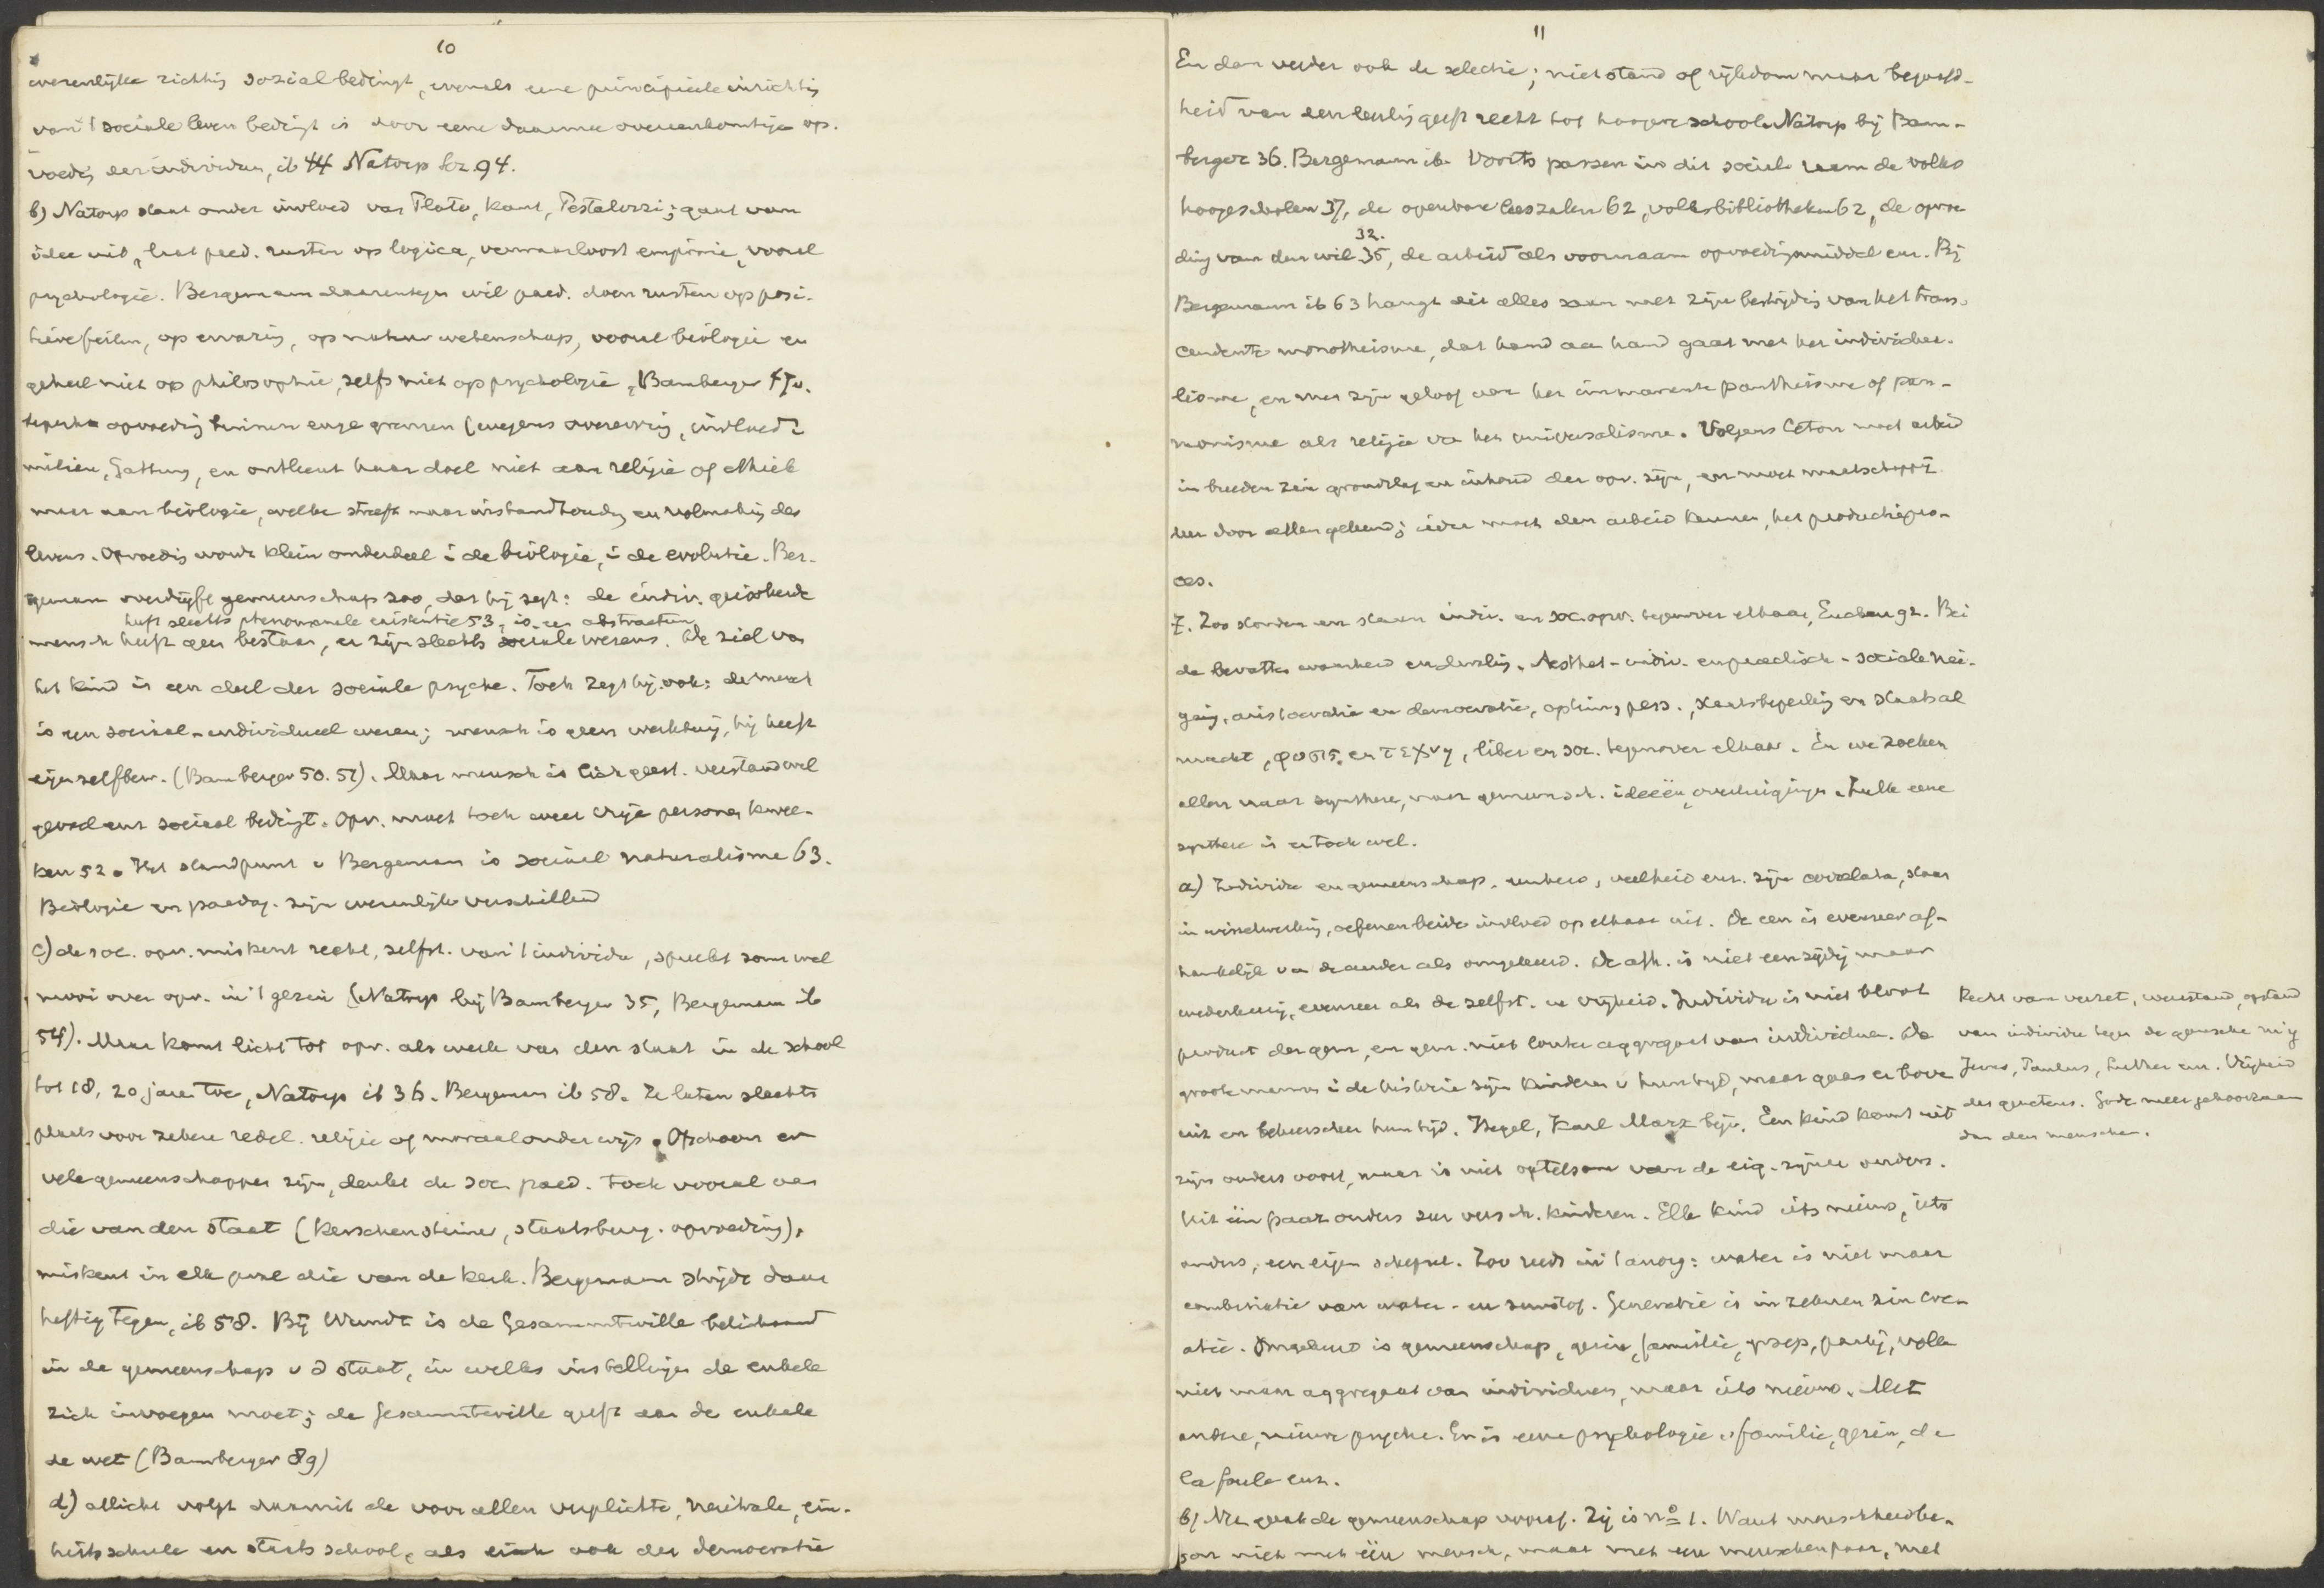 10
wezenlijke richting sozial bedingt, evenals eene principieele inrichting
van 't sociale leven bedingt is door eene daarmee overeenkomstige op-
voeding der individuen, ib 44 Natorp bz 94.
b) Natorp staat onder invloed van Plato, Kant, Pestalozzi; gaat van
idee uit, laat paed. rusten op logica, verwaarloost empirie, vooral
psychologie. Bergemann daarentegen wil paed. doen rusten op posi-
tieve feiten, op ervaring, op natuurwetenschap, vooral biologie en
geheel niet op philosophie, zelfs niet op psychologie, Bamberger 47v.
beperkt opvoeding binnen enge grenzen (wegens overerving, invloed v
milieu, Gattung, en ontleent haar doel niet aan religie of ethiek
maar aan biologie, welke streeft naar instandhouding en volmaking des
levens. Opvoeding wordt klein onderdeel i de biologie, i de evolutie. Ber-
gemann overdrijft gemeenschap zoo, dat hij zegt: de indiv. geïsoleerde
heeft slechts phenomenale existentie 53, is een abstractum
mensch heeft geen bestaan, er zijn slechts sociale wezens. De ziel van
het kind is een deel der sociale psyche. Toch zegt hij ook: de mensch
is een sociaal-individueel wezen; mensch is geen werktuig, hij heeft
eigen zelfbew. (Bamberger 50. 51). Maar mensch is lich. geest. verstand wil
gevoel enz sociaal bedingt. Opv. moet toch weer vrije persona kwee-
ken 52. Het standpunt v Bergemann is sociaal naturalisme 63.
Biologie en paedag. zijn wezenlijk verschillend
c) de soc. opv. miskent recht, zelfst. van 't individu, spreekt soms wel
mooi over opv. in 't gezin (Natorp bij Bamberger 35, Bergemann ib
54). Maar komt licht tot opv. als werk van den staat in de school
tot 18, 20 jaar toe, Natorp ib 36. Bergemann ib 58. Ze laten slechts
plaats voor zekere redel. religie of moraalonderwijs. Ofschoon er
vele gemeenschappen zijn, denkt de soc. paed. toch vooral aan
die van den staat (Kerschensteiner, staatsburg. opvoeding),
miskent in elk geval die van de kerk. Bergemann strijdt daar
heftig tegen, ib 58. Bij Wundt is de Gesammtwille belichaamd
in de gemeenschap v d staat, in welks instellingen de enkele
zich invoegen moet; de Gesammtwille geeft aan de enkele
de wet (Bamberger 89)
d) allicht volgt daaruit de voor allen verplichte, neutrale, ein-
heitsschule en staatsschool, als eisch ook der democratie
11
En dan verder ook de selectie; niet stand of rijkdom maar begaafd-
heid van den leerling geeft recht tot hoogere school. Natorp bij Bam-
berger 36. Bergemann ib. Voorts passen in dit sociale raam de volks
hoogescholen 37, de openbare leeszalen 62, volksbibliotheken 62, de opvoe-
32.
ding van den wil 35, de arbeid als voornaam opvoedingsmiddel enz. Bij
Bergemann ib 63 hangt dit alles saam met zijn bestrijding van het trans-
cendente monotheisme, dat hand aan hand gaat met het individua-
lisme, en met zijn geloof aan het immanente pantheisme of pan-
monisme als religie van het universalisme. Volgens Ceton moet arbeid
in breeden zin grondslag en inhoud der opv. zijn, en moet maatschappij
leer door allen geleerd; ieder moet den arbeid kennen, het productiepro-
ces.
7. Zoo stonden en staan indiv. en soc. opv. tegenover elkaar, Eucken 92. Bei
de bevatten waarheid en dwaling. Aesthet-indiv. en practisch-sociale nei-
ging, aristocratie en democratie, optim, pess., staatsbeperking en staatsal
macht, φυσις en τεχνη, liber. en soc. tegenover elkaar. En we zoeken
allen naar synthese, naar gemeensch. ideeën, overtuigingen. Zulk eene
synthese is er toch wel.
a) Individu en gemeenschap, eenheid, veelheid enz. zijn correlata, staan
in wisselwerking, oefenen beide invloed op elkaar uit. De een is evenzeer af-
hankelijk van de ander als omgekeerd. De afh. is niet eenzijdig maar
wederkeerig, evenzeer als de zelfst. en vrijheid. Individu is niet bloot
product der gem, en gem. niet louter aggregaat van individua. De
groote mannen i de historie zijn kinderen v hun tijd, maar gaan er boven
uit en beheerschen hun tijd. Hegel, Karl Marx bijv. Een kind komt uit
zijn ouders voort, maar is niet optelsom van de eig. zijner ouders.
Uit één paar ouders zeer versch. kinderen. Elk kind iets nieuws, iets
anders, een eigen schepsel. Zoo reeds in 't anorg: water is niet maar
combinatie van water- en zuurstof. Generatie is in zekeren zin cre-
atie. Omgekeerd is gemeenschap, gezin, familie, groep, partij, volk
niet maar aggregaat van individuen, maar iets nieuws. Met
andere, nieuwe psyche. Er is eene psychologie v familie, gezin, de
la foule enz.
b) Nu gaat de gemeenschap voorop. Zij is no 1. Want menschheid be-
gon niet met één mensch, maar met een menschenpaar, met
Recht van verzet, weerstand, opstand
van individu tegen de gemeensch. mij
Jezus, Paulus, Luther enz. Vrijheid
des gewetens. Gode meer gehoorzaam
dan den menschen.